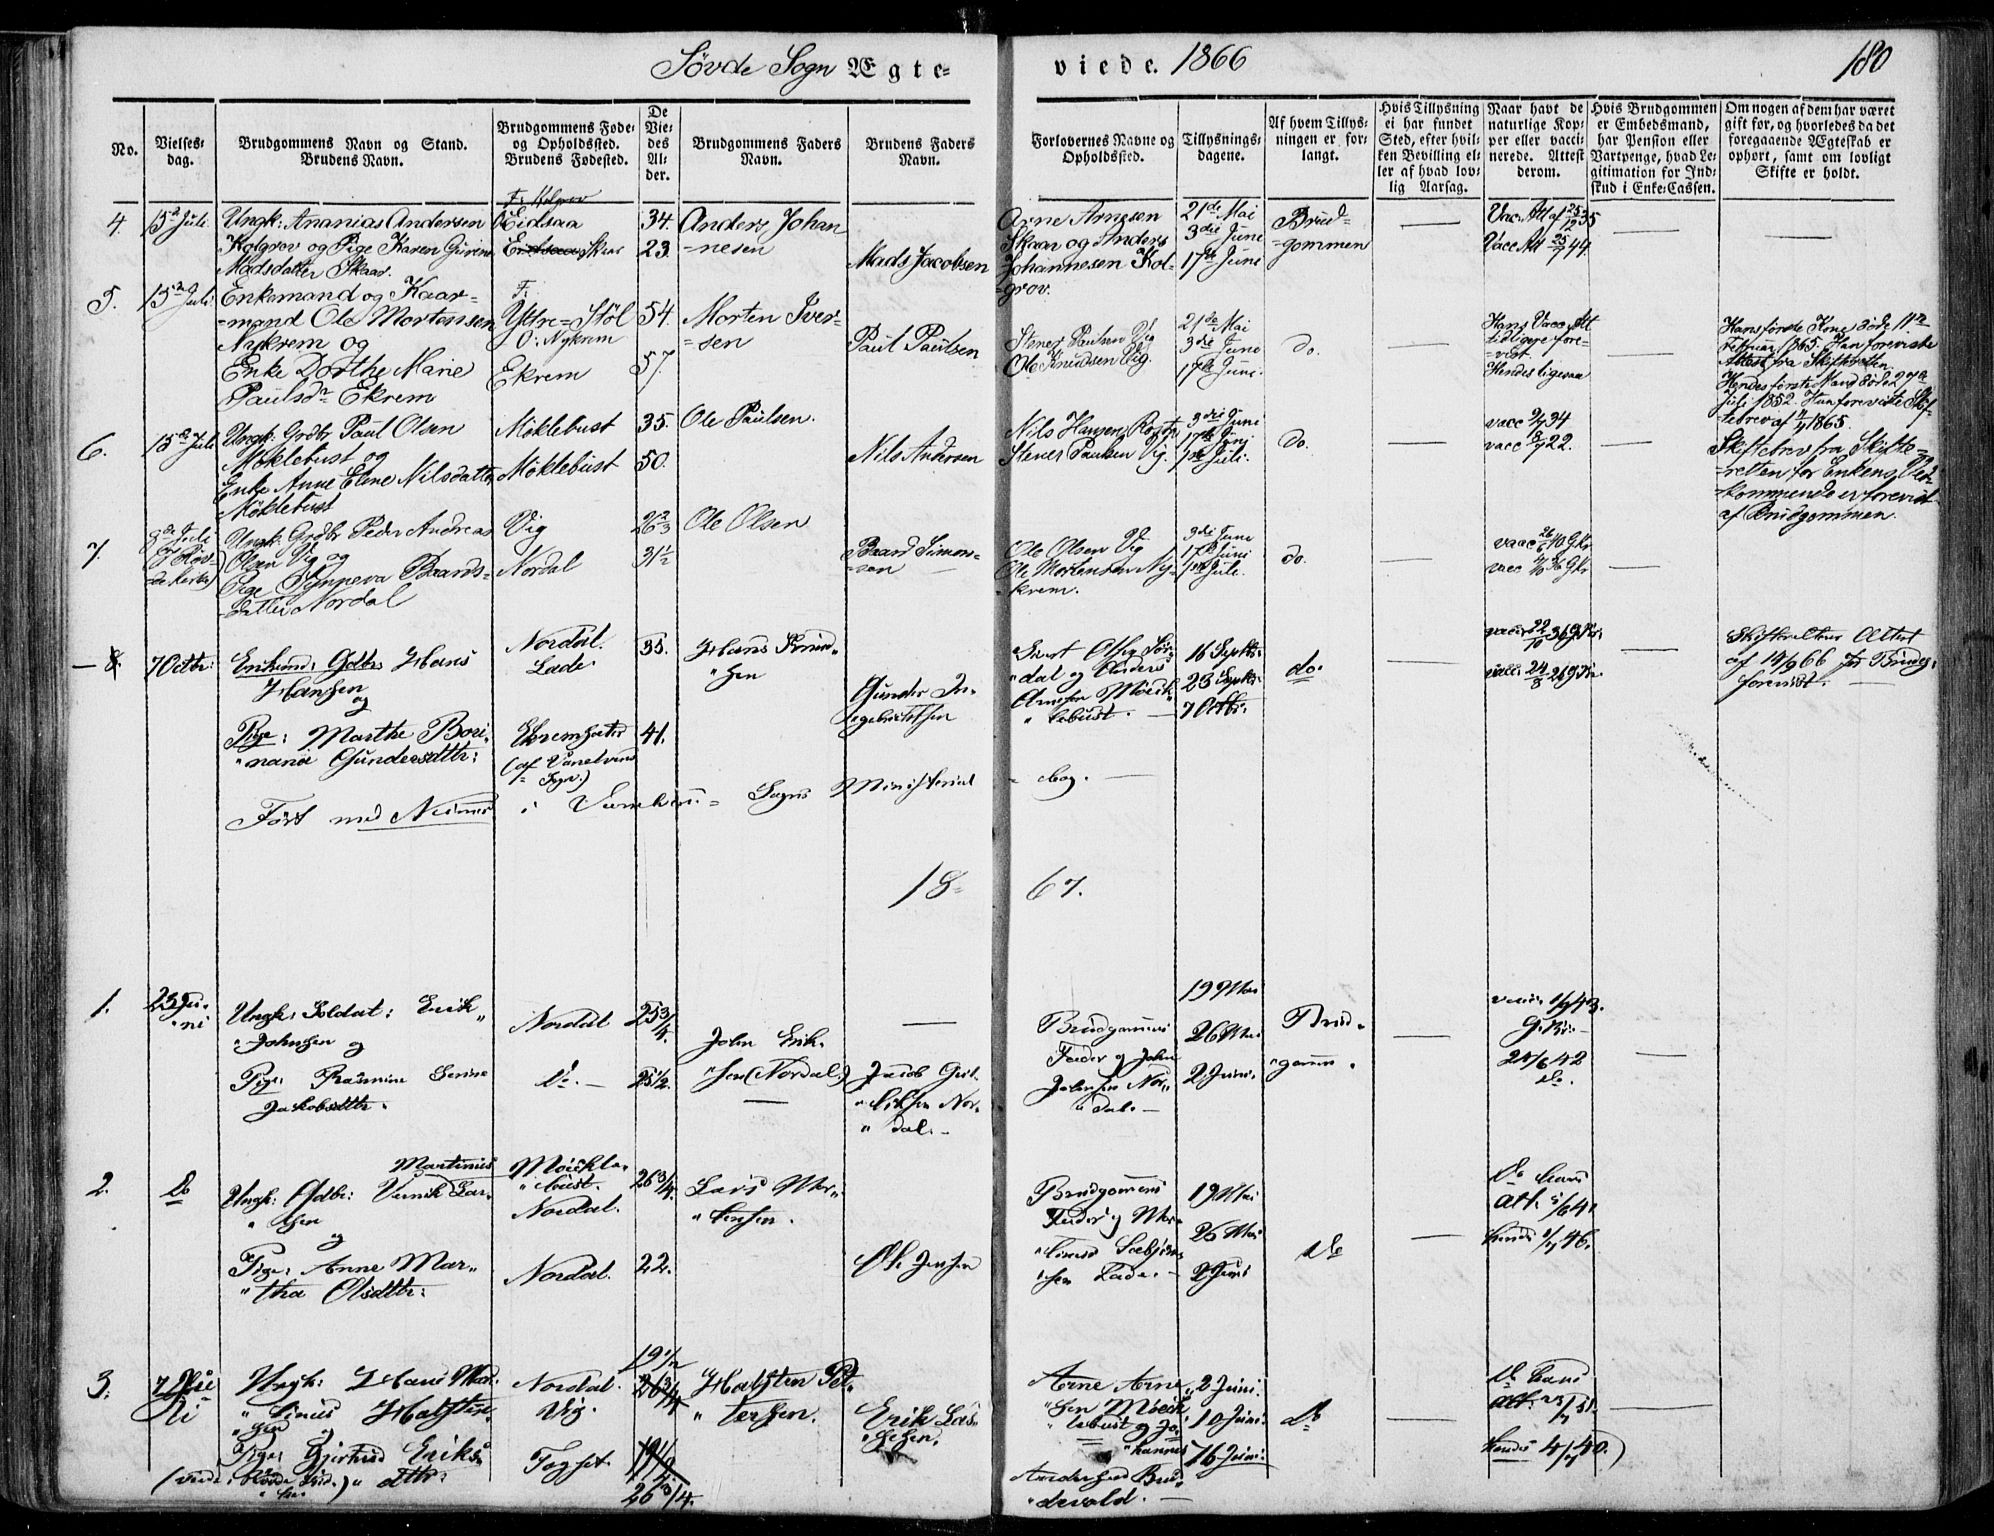 Søvde Sogn Ægte-
viede. 1866
180
No.
Vielses-
dag.
Brudgommens Navn og Stand.
Brudens Navn.
Brudgommens Føde-
og Opholdssted.
Brudens Fødested.
De
Vie-
des
Al-
der.
Brudgommens Faders
Navn.
Brudens Faders
Navn.
Forlovernes Navne og
Opholdssted.
Tillysnings-
dagene.
Af hvem Tillys-
ningen er for-
langt.
Hvis Tillysning
ei har fundet
Sted, efter hvil-
ken Bevilling el-
ler af hvad lov-
lig Aarsag.
Naar havt de
naturlige Kop-
per eller vacci-
nerede. Attest
derom.
Hvis Brudgommen
er Embedsmand,
har Pension eller
Vartpenge, hvad Le-
gitimation for Ind-
skud i Enke-Cassen.
Om nogen af dem har været
gift før, og hvorledes da det
foregaaende Ægteskab er
ophørt, samt om lovligt
Skifte er holdt.
4.
15de Juli
Ungk: Ananias Andersen
Kolgrov og Pige Karen Gurine
Madsdatter Skaar.
F: Kolgrov
O: Eidsaa
Skaar
34.
23.
Anders Johan
=nesen
Mads Jacobsen
Arne Arnesen
Skaar og Anders
Johannesen Kol-
=grov.
21de Mai
3die Juni
17de Juni
Brud-
=gommen
Vac. Att af 25/12 35
Vacc Att 25/7 44.
5.
15de Juli
Enkemand og Kaar=
=mand Ole Mortensen
Nykrem og
Enke Dorthe Marie
Paulsdr Ekrem
F:
Yttre=Støl
O: Nykrem
Ekrem
54.
57.
Morten Iver-
=sen
Paul Paulsen
Stener Paulsen Vig
Ole Knudsen Vig.
21de Mai
3die Juni
17de Juni.
do.
Hans Vacc Att
tidligere fore-
=vist
Hendes ligesaa
Hans første Kone døde 11te
Februar 1865. Han foreviste
Attest fra Skifteretten.
Hendes første Mand døde 27de
Juli 1852. Hun foreviste Skif-
tebrev af 4/4 1865.
6.
15de Juli
Ungk: Grdbr Paul Olsen
Møklebust og
Enke Anne Elene Nilsdatter
Møklebust
Møklebust
Møklebust
35.
50.
Ole Paulsen.
Nils Andersen
Nils Hansen
Stener Paulsen Vig.
3die Juni
17de Juni
1ste Juli.
do.
vacc 9/7 34
vacc 8/7 22.
Skiftebrev fra Skifte=
=retten for Enkens Ved-
kommende er forevist
af Brudgommen.
7.
8de Juli
Ungk. Grdbr Peder Andreas
Olsen Vig og
Pige Synneva Baards-
=datter Nordal
Vig
Nordal
26 2/3
31 1/2
Ole Olsen
Baard Simon-
=sen
Ole Olsen Vig
Ole Mortensen Ny-
krem.
3die Juni
17de Juni
1ste Juli.
do.
vacc 26/6 40. Gkr
vacc 9/10 36 Gkr
8.
7 Octbr:
Enkemd: Gdbr: Hans
Hansen
og
Pige: Marthe Beri-
"nane Gundersdttr:
Nordal.
Lade.
(af Vanelvens
Sogn.)
35.
41.
Hans Knud-
"sen
Gunder In-
"gebrigtsen
"dal og Anders
Arnesen Møck-
"lebust.
16 Septbr:
23 Septbr:
7 Octbr:
do.
vacc: 22/10 36 Gkr:
vacc: 24/8 26 Gkr.
Skifterettens Attest
af 14/9 66 for Brudg:
forevist.
Ført med Numer i Vanelvens Sogns Ministerial
bog.
18
67.
1.
23 Ju-
"ni
Ungk: Soldat: Erik
Johnsen og
Pige: Rasmine Serine
Jakobsdttr.
Nordal
do.
25 3/4.
25 1/2.
John Erik-
"sen (Nordal.)
Jacob Gul-
"liksen Nor-
"dal.
Brudgommens
Fader og John
Johnsen Nor-
"dal.
19 Mai
26 Mai
2 Juni.
Brud-
"gommen
vacc: 1/9 43.
Gkr:
24/6 42
do.
2.
do
Martinius
Ungk: Gdbr: Lar-
"sen
og
Pige: Anne Mar-
"tha Olsdttr:
Møckle-
"bust.
Nordal.
Nordal.
26 3/4.
22.
Lars Mor-
"tensen.
Ole Jensen
Brudgommens
Fader og Mar-
"sen Lade.
19 Mai
26 Mai
2 Juni
do
do hans
att. 5/6 41
hendes 1/7 46.
3.
7 Juli
Ungk: Hans Mar-
"tinius Halsten-
"sen og
Pige: Gjertrud Eriks-
"dttr:
Nordal.
Vig.
Fogset.
19 1/2
26 3/4
19 1/2
26 3/4.
Halsten Pet-
"tersen.
Erik Las-
"sesen.
Arne Arne-
"sen Møck-
"lebust og Jo-
"hannes
Andersen Bru-
"devold.
2 Juni.
10 Juni.
16 Juni
do
do hans
hendes 4/7 40.)